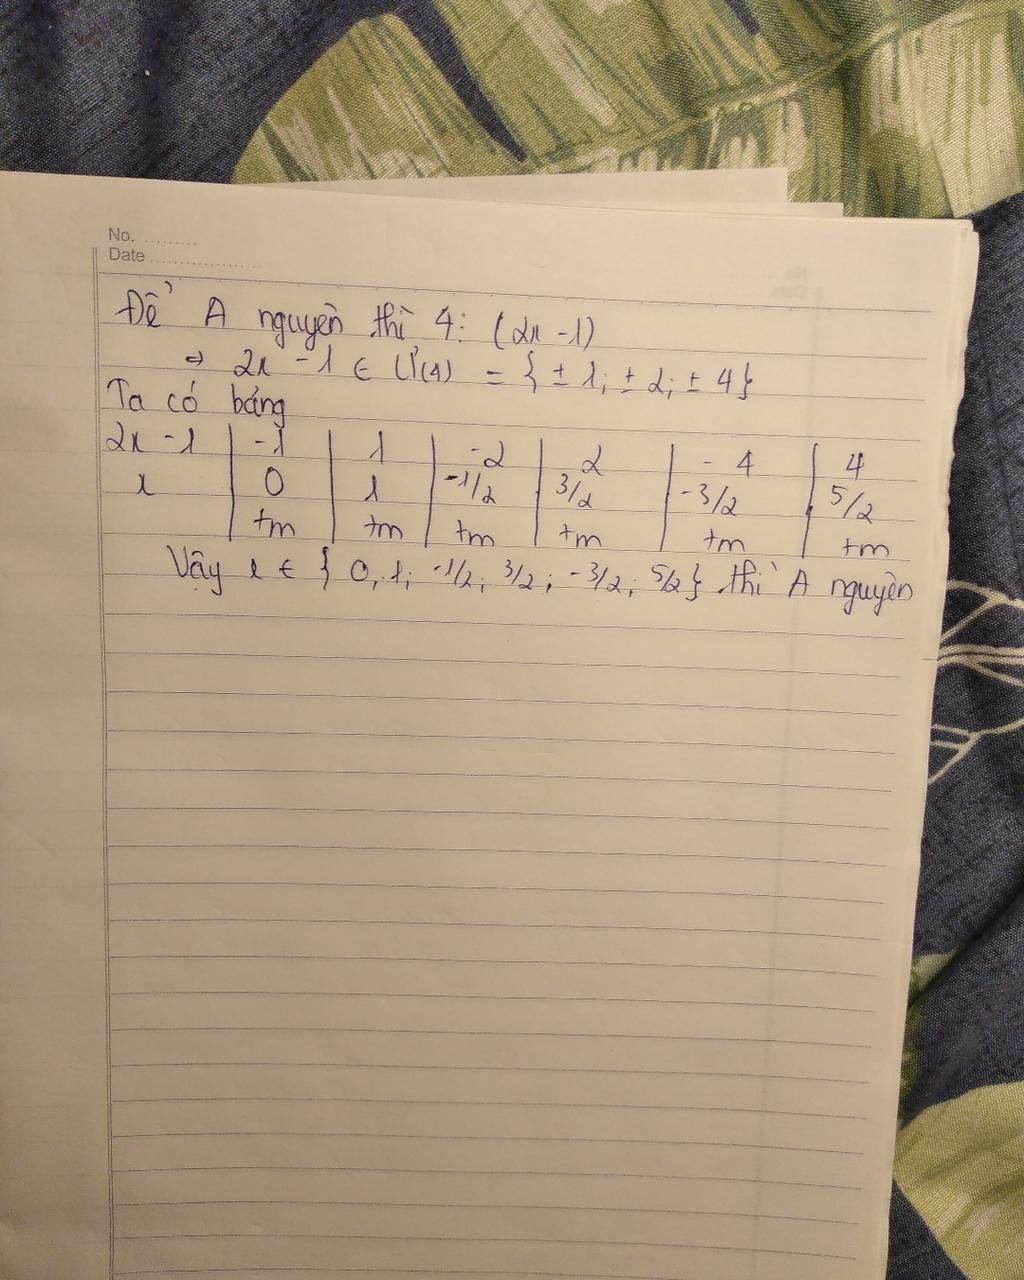 No. .........
Date ..................
Để A nguyên thì 4 : (2x -1)
⇒ 2x -1 ∈ Ư(4) = { ± 1; ± 2; ± 4}
Ta có bảng
2x -1 | -1 | 1 | -2 | 2 | -4 | 4
x | 0 | 1 | -1/2 | 3/2 | -3/2 | 5/2
| +m | +m | +m | +m | +m | +m
Vậy x ∈ { 0, 1; -1/2; 3/2; -3/2; 5/2} thì A nguyên